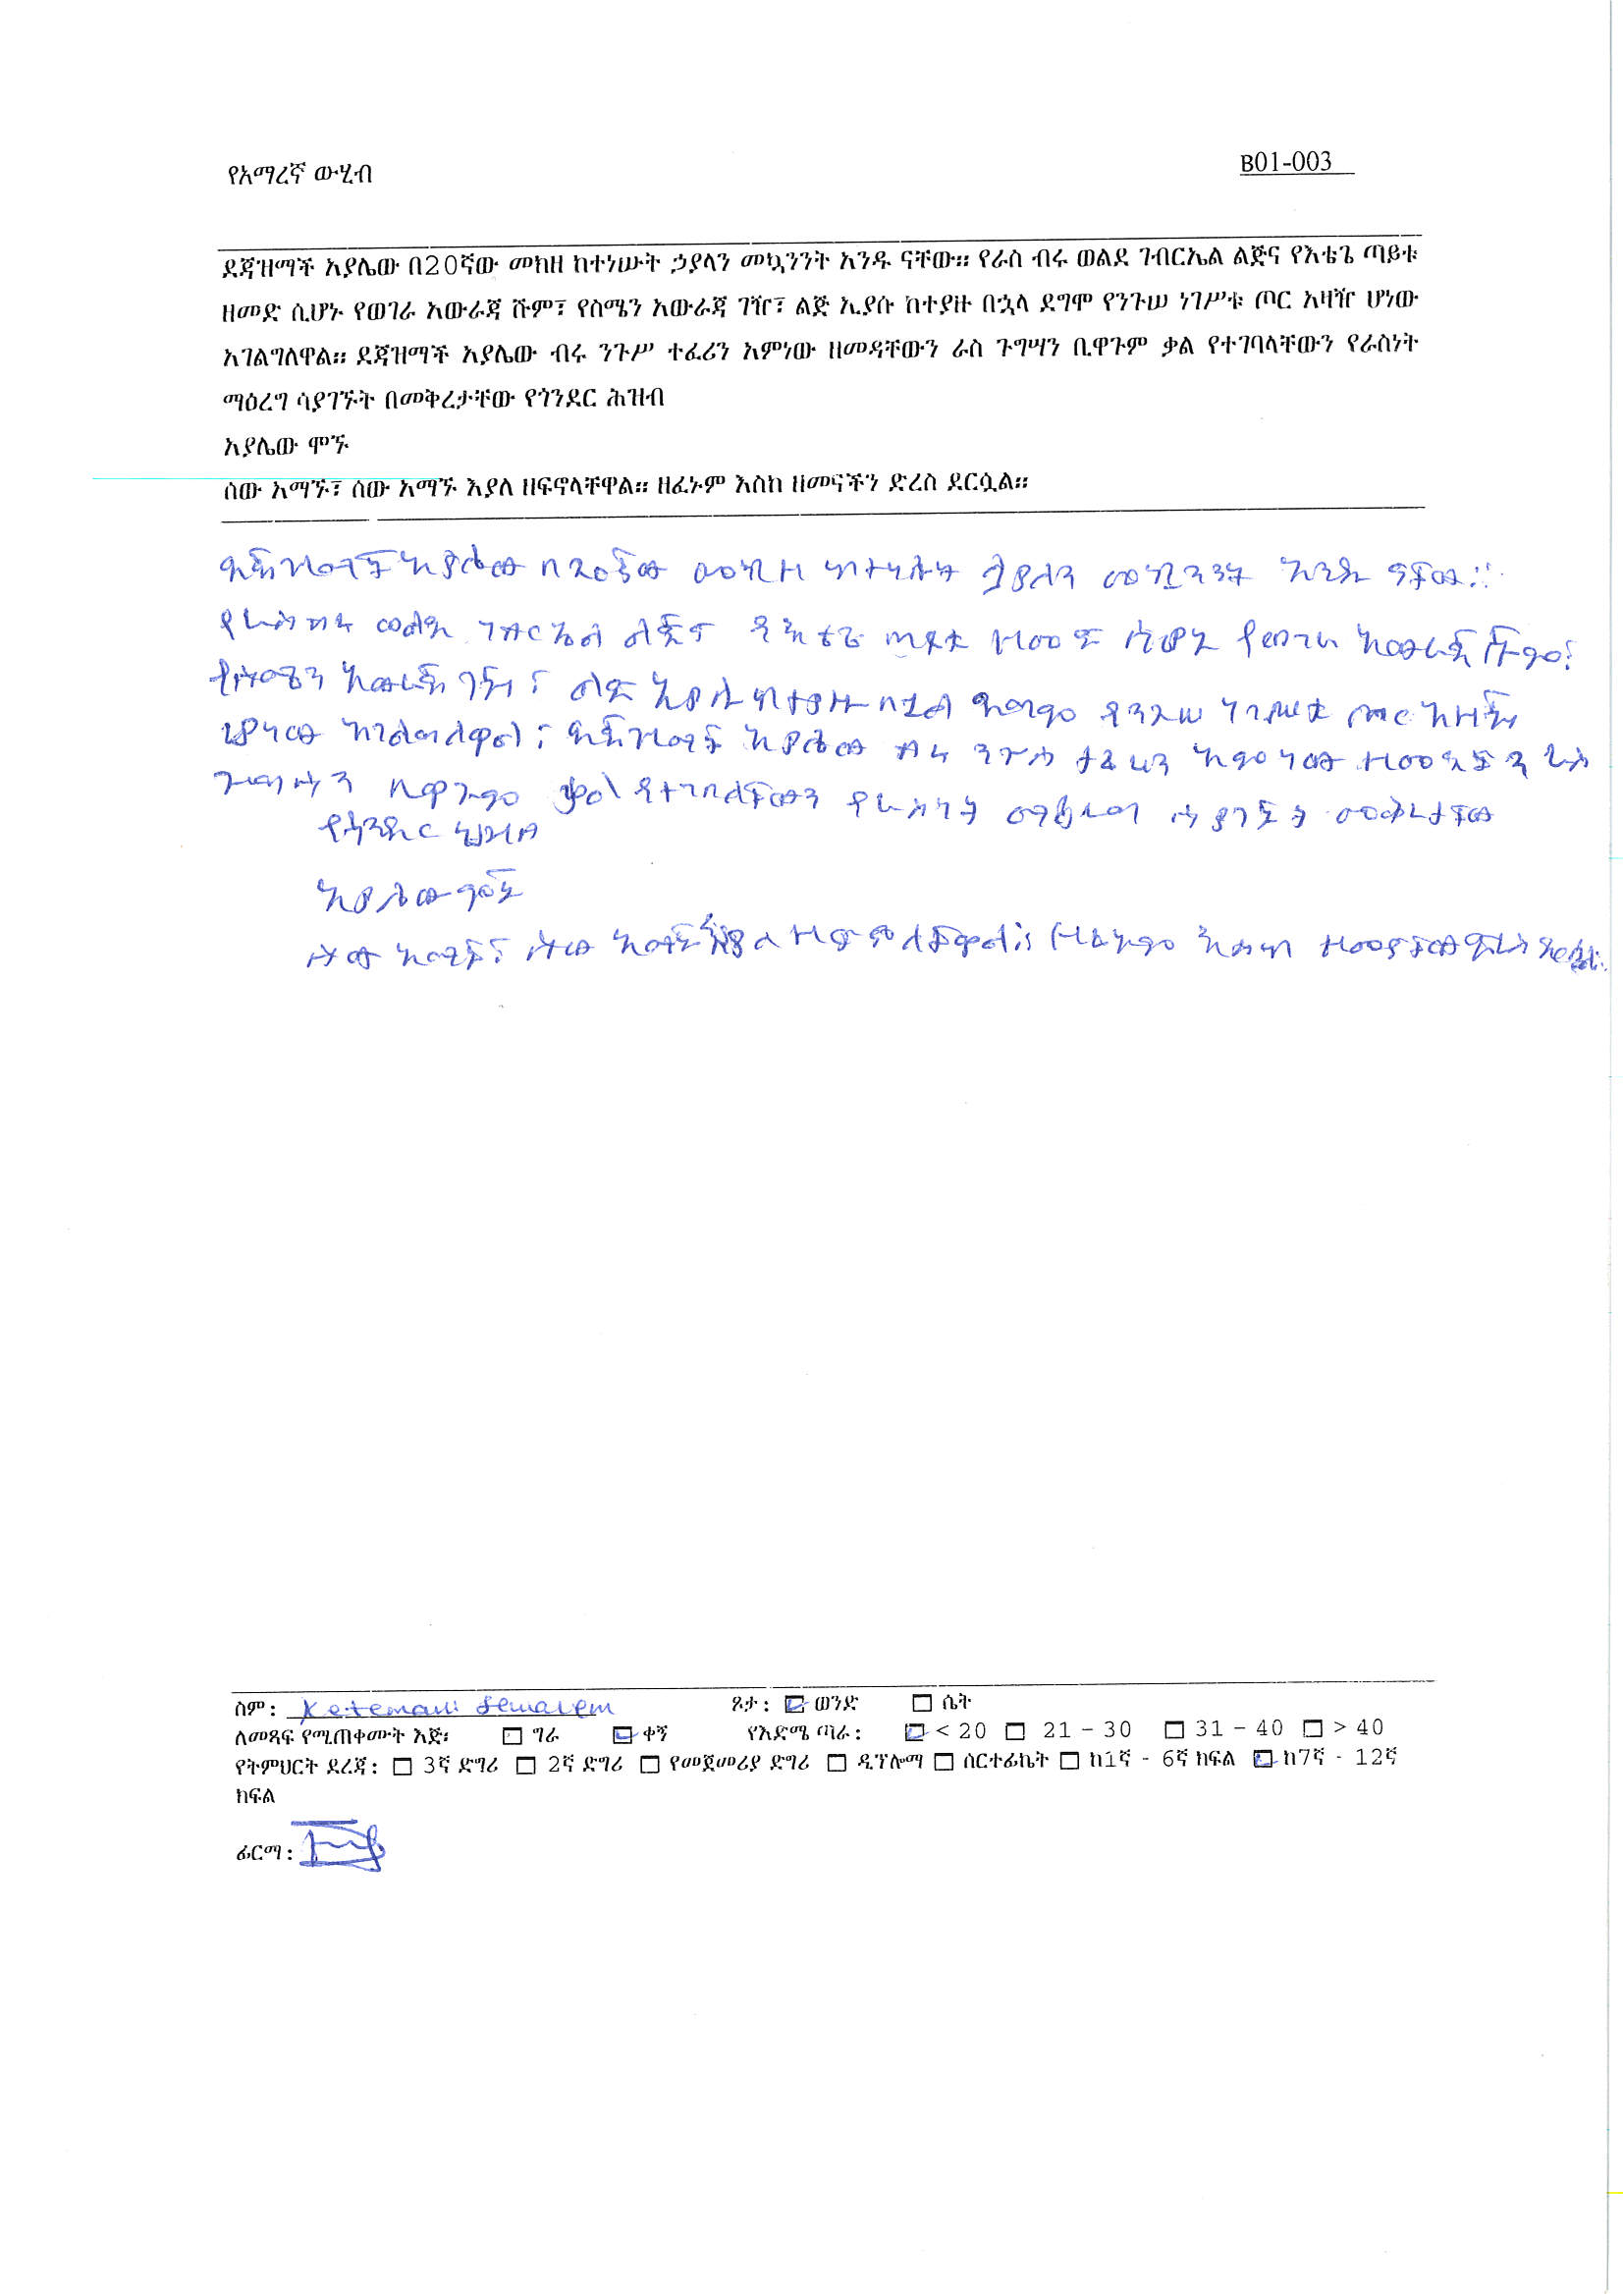 የአማረኛ ውሂብ
B01-003
ደጃዝማች አያሌው በ20ኛው መክዘ ከተነሡት ኃያላን መኳንንት አንዱ ናቸው። የራስ ብሩ ወልደ ገብርኤል ልጅና የእቴጌ ጣይቱ
ዘመድ ሲሆኑ የወገራ አውራጃ ሹም፣ የስሜን አውራጃ ገዥ፣ ልጅ ኢያሱ ከተያዙ በኋላ ደግሞ የንጉሠ ነገሥቱ ጦር አዛዥ ሆነው
አገልግለዋል። ደጃዝማች አያሌው ብሩ ንጉሥ ተፈሪን አምነው ዘመዳቸውን ራስ ጉግሣን ቢዋጉም ቃል የተገባላቸውን የራስነት
ማዕረግ ሳያገኙት በመቅረታቸው የጎንደር ሕዝብ
አያሌው ሞኙ
ሰው አማኙ፣ ሰው አማኙ እያለ ዘፍኖላቸዋል። ዘፈኑም እስከ ዘመናችን ድረስ ደርሷል።
ደጃዝማች አያሌው በ20ኛው መክዘ ከተነሱት ኃያላን መኳንንት አንዱ ናቸው።
የራስ ብሩ ወልደ ገብርኤል ልጅና የእቴጌ ጣይቱ ዘመድ ሲሆኑ የወገራ አውራጃ ሹም፣
የስሜን አውራጃ ገዥ፣ ልጅ ኢያሱ ከተያዙ በኋላ ደግሞ የንጉሠ ነገሥቱ ጦር አዛዥ
ሆነው አገልግለዋል፣ ደጃዝማች አያሌው ብሩ ንጉሥ ተፈሪን አምነው ዘመዳቸውን ራስ
ጉግሣን ቢዋጉም ቃል የተገባላቸውን የራስነት ማዕረግ ሳያገኙት መቅረታቸው
የጎንደር ህዝብ
አያሌው ሞኙ
ሰው አማኙ፣ ሰው አማኙ እያለ ዘፍኖላቸዋል። ዘፈኑም እስከ ዘመናቸው ድረስ
ስም: Ketemaw
ጾታ: ወንድ ሴት
ለመጻፍ የሚጠቀሙት እጅ፡ ግራ ቀኝ የእድሜ ጣራ: < 20 21 – 30 31 – 40 > 40
የትምህርት ደረጃ: 3ኛ ድግሪ 2ኛ ድግሪ የመጀመሪያ ድግሪ ዲፕሎማ ሰርተፊኬት ከ1ኛ - 6ኛ ክፍል ከ7ኛ - 12ኛ
ክፍል
ፊርማ: